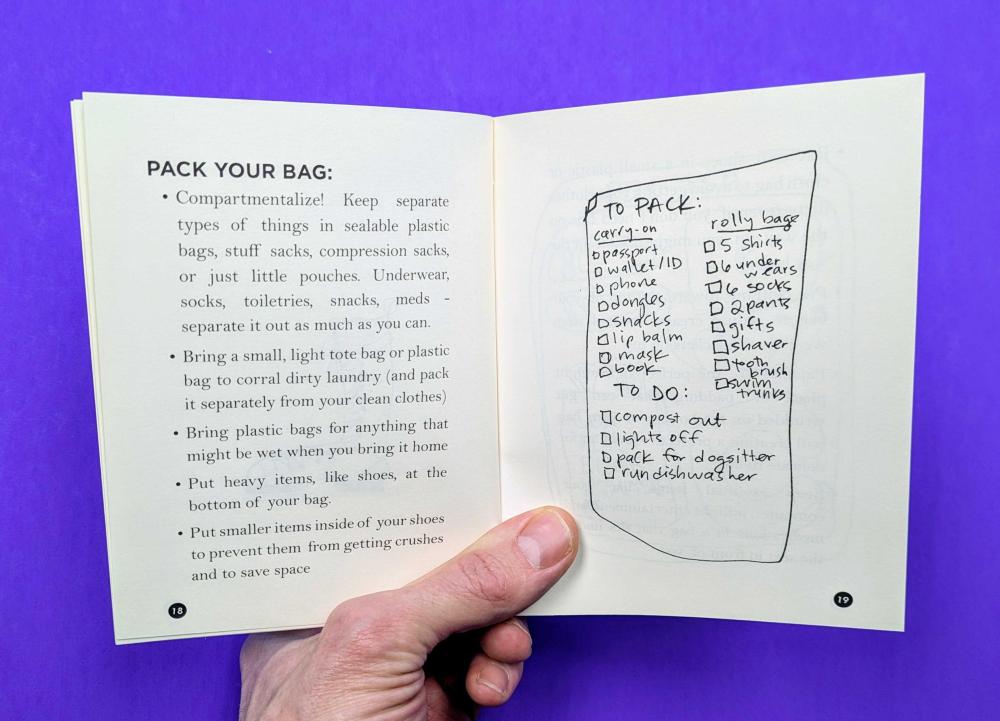 PACK YOUR BAG:
• Compartmentalize! Keep separate
types of things in sealable plastic
bags, stuff sacks, compression sacks,
or just little pouches. Underwear,
socks, toiletries, snacks, meds -
separate it out as much as you can.
• Bring a small, light tote bag or plastic
bag to corral dirty laundry (and pack
it separately from your clean clothes)
• Bring plastic bags for anything that
might be wet when you bring it home
• Put heavy items, like shoes, at the
bottom of your bag.
• Put smaller items inside of your shoes
to prevent them from getting crushes
and to save space
18
TO PACK:
carry-on
passport
wallet/ID
phone
dongles
snacks
lip balm
mask
book
rolly bage
5 shirts
6 under
wears
6 socks
2 pants
gifts
shaver
tooth
brush
swim
trunks
TO DO:
compost out
lights off
pack for dogsitter
run dishwasher
19